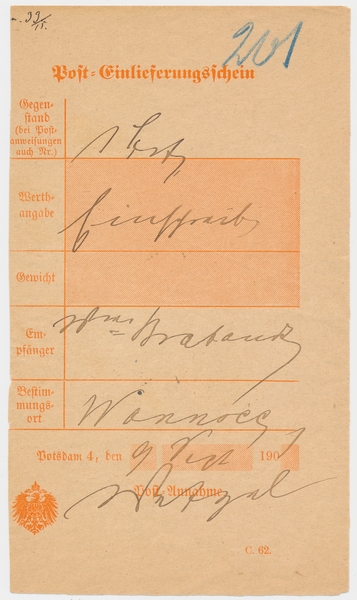 201
Post-Einlieferungsschein
Gegen-
stand
(bei Post-
anweisungen
auch Nr.)
1 Brf
Werth-
angabe
Einschreib
Gewicht
Em-
pfänger
Brabandt
Bestim-
mungs-
ort
Wannsee
Potsdam 4, den 9 190
Post-Annahme
C. 62.